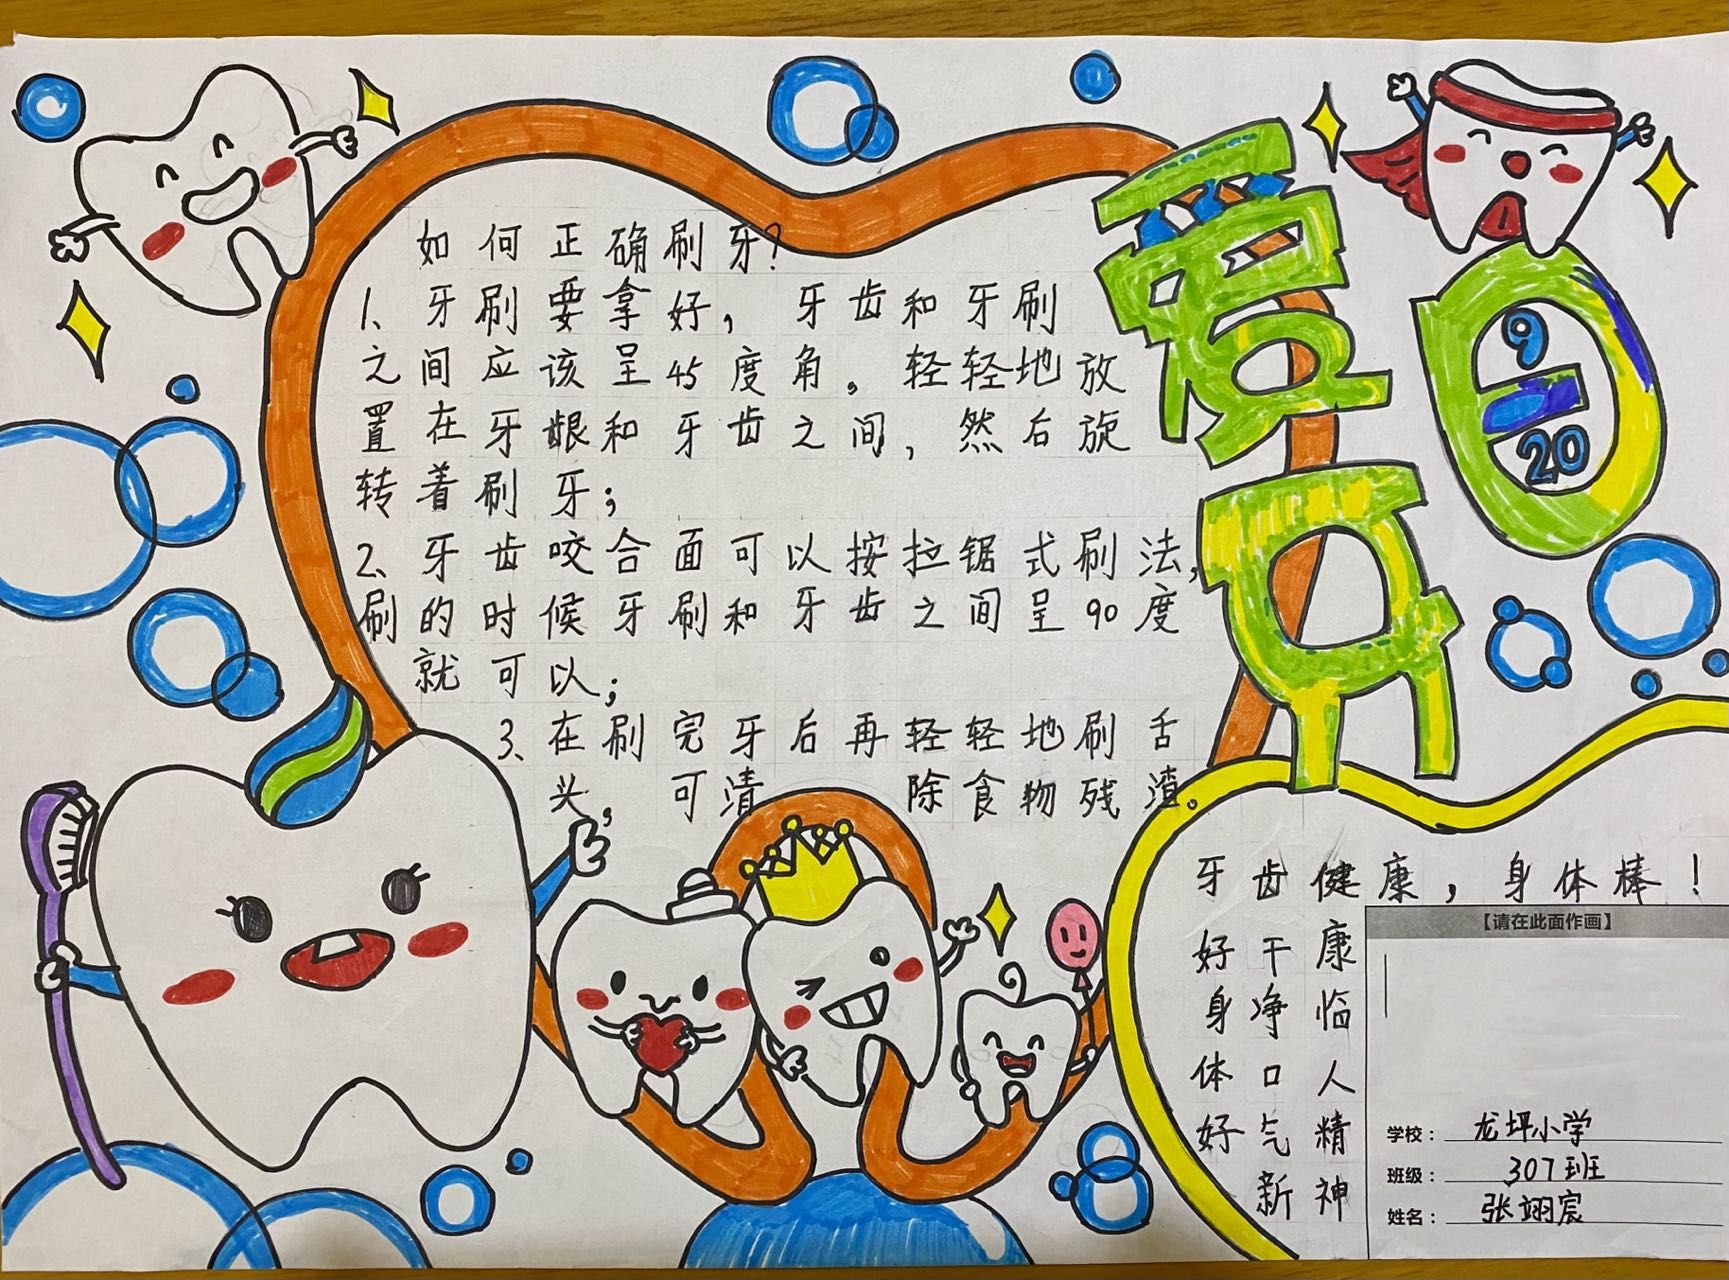 如何正确刷牙？
1、牙刷要拿好，牙齿和牙刷
之间应该呈45度角。轻轻地放
置在牙龈和牙齿之间，然后旋
转着刷牙；
2、牙齿咬合面可以按拉锯式刷法，
刷的时候牙刷和牙齿之间呈90度
就可以；
3、在刷完牙后再轻轻地刷舌
头，可清除食物残渣。
爱牙日
9
20
牙齿健康，身体棒！
好身体好
干净口气新
康临人精神
【请在此面作画】
学校：龙坪小学
班级：307班
姓名：张翊宸